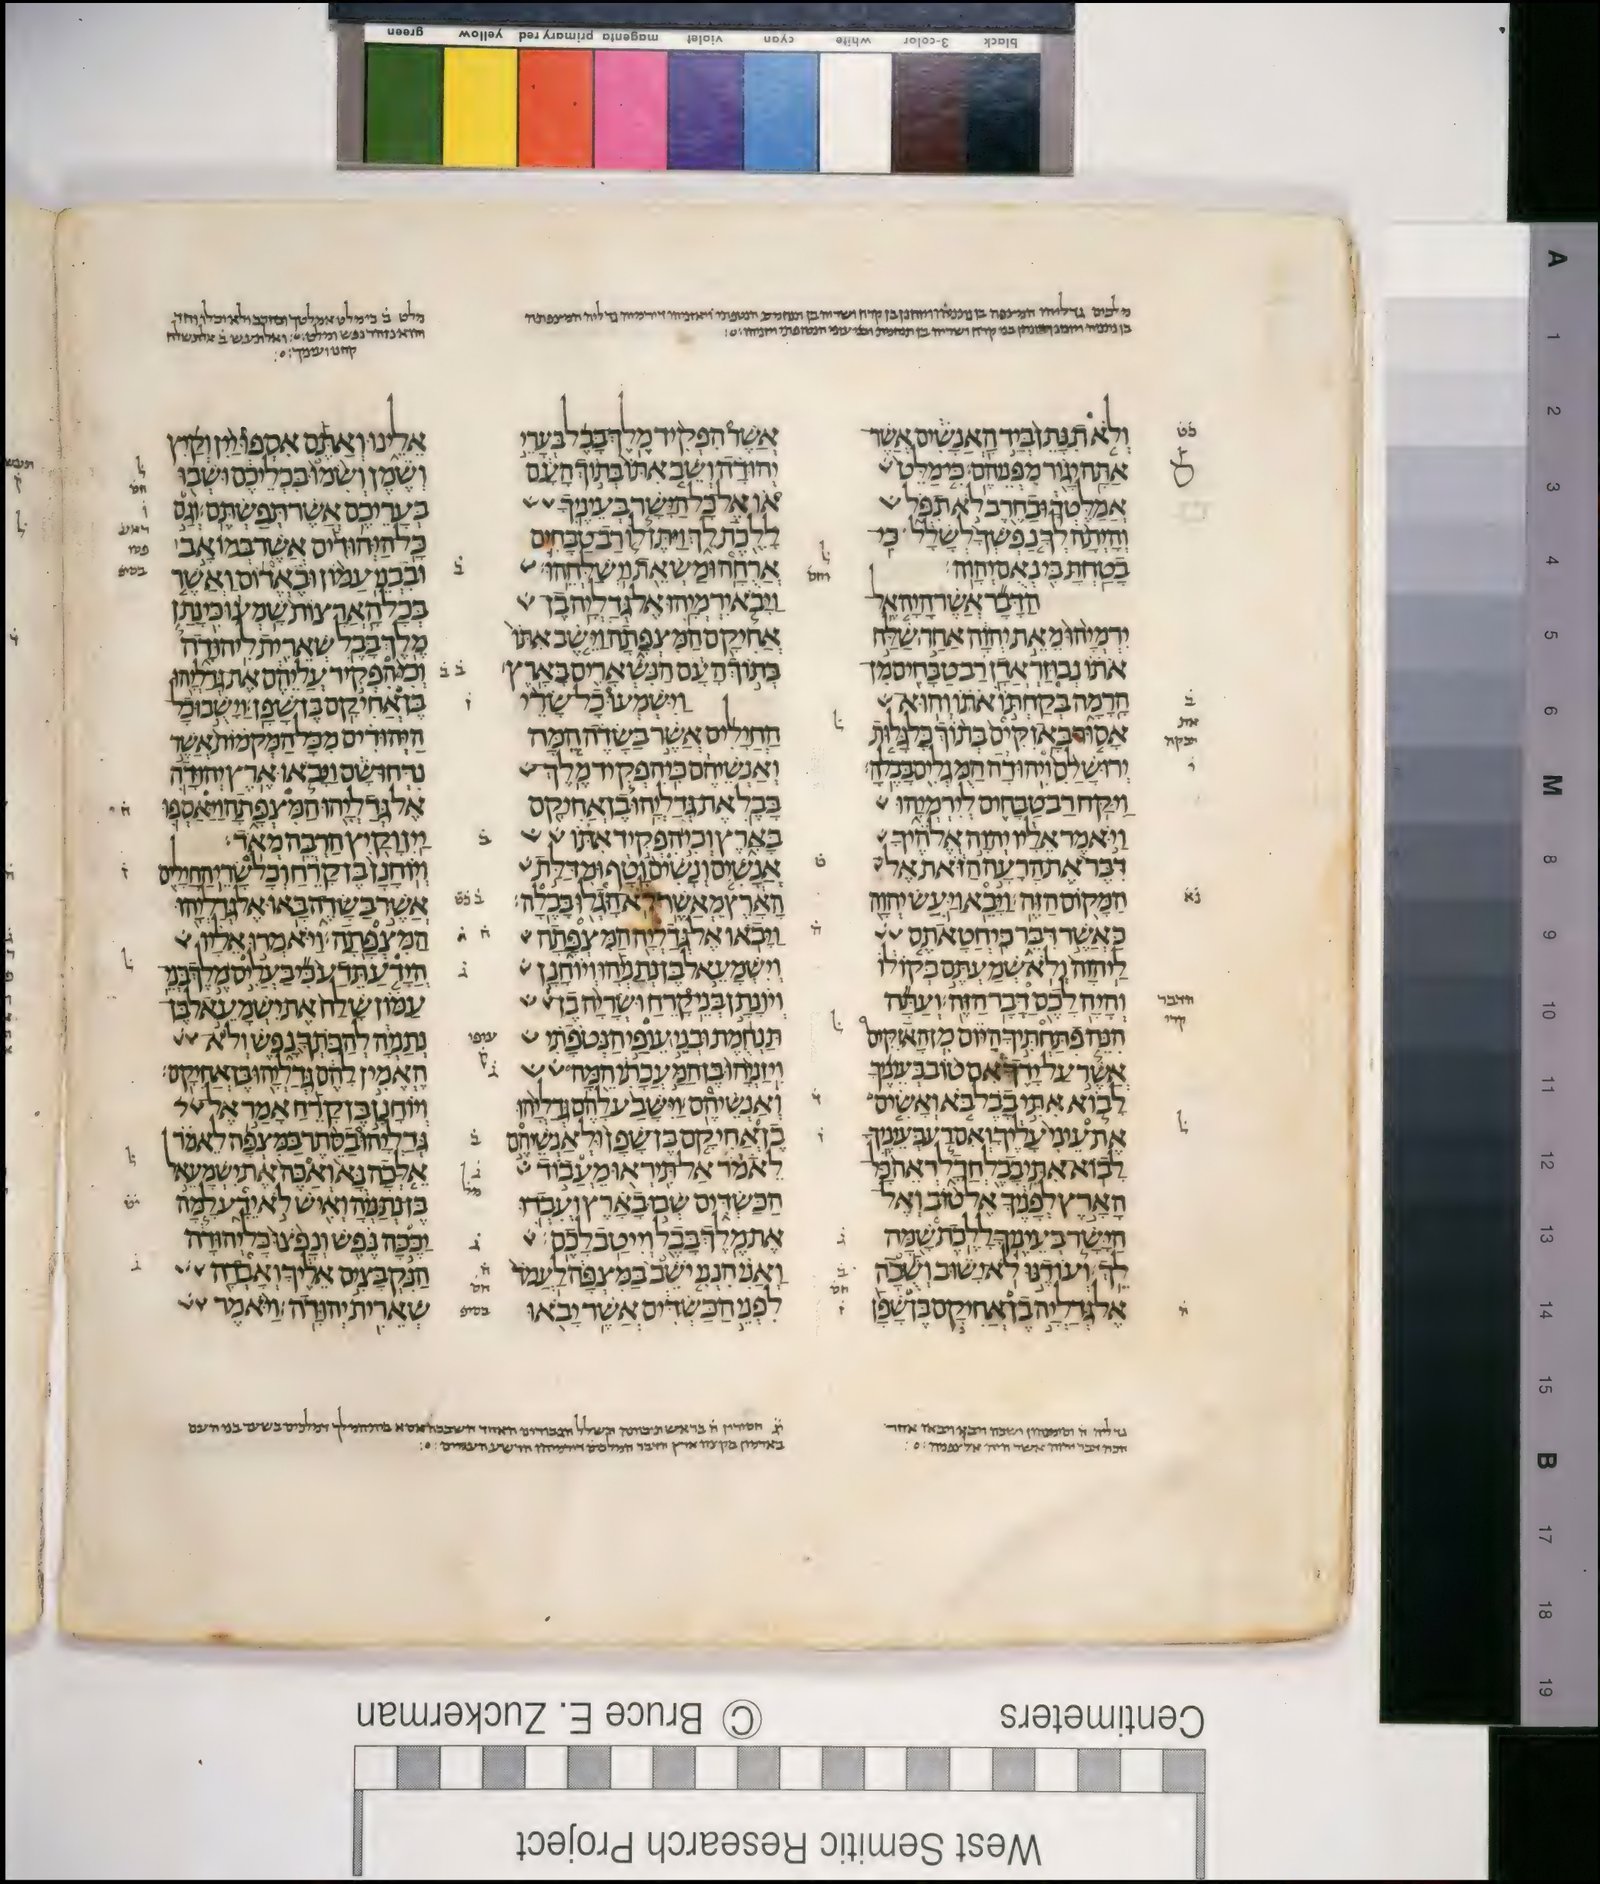 green yellow primary red magenta violet cyan white 3-color black
ולא תנתן ביד האנשים אשר
אתה יגור מפניהם׃ כי מלט
אמלטך ובחרב לא תפל
והיתה לך נפשך לשלל כי
בטחת בי נאם יהוה׃
הדבר אשר היה אל
ירמיהו מאת יהוה אחר שלח
אתו נבוזראדן רב טבחים מן
הרמה בקחתו אתו והוא
אסור באזקים בתוך כל גלות
ירושלם ויהודה המגלים בבלה׃
ויקח רב טבחים לירמיהו
ויאמר אליו יהוה אלהיך
דבר את הרעה הזאת אל
המקום הזה׃ ויבא ויעש יהוה
כאשר דבר כי חטאתם
ליהוה ולא שמעתם בקולו
והיה לכם דבר הזה׃ ועתה
הנה פתחתיך היום מן האזקים
אשר על ידך אם טוב בעיניך
לבוא אתי בבל בא ואשים
את עיני עליך ואם רע בעיניך
לבוא אתי בבל חדל ראה כל
הארץ לפניך אל טוב ואל
הישר בעיניך ללכת שמה
לך׃ ועודנו לא ישוב ושבה
אל גדליה בן אחיקם בן שפן
אשר הפקיד מלך בבל בערי
יהודה ושב אתו בתוך העם
או אל כל הישר בעיניך
ללכת לך ויתן לו רב טבחים
ארחה ומשאת וישלחהו׃
ויבא ירמיהו אל גדליה בן
אחיקם המצפתה וישב אתו
בתוך העם הנשארים בארץ׃
וישמעו כל שרי
החילים אשר בשדה המה
ואנשיהם כי הפקיד מלך
בבל את גדליהו בן אחיקם
בארץ וכי הפקיד אתו
אנשים ונשים וטף ומדלת
הארץ מאשר לא הגלו בבלה׃
ויבאו אל גדליה המצפתה
וישמעאל בן נתניהו ויוחנן
ויונתן בני קרח ושריה בן
תנחמת ובני עופי הנטפתי
ויזניהו בן המעכתי המה
ואנשיהם׃ וישבע להם גדליהו
בן אחיקם בן שפן ולאנשיהם
לאמר אל תיראו מעבוד
הכשדים שבו בארץ ועבדו
את מלך בבל וייטב לכם׃
ואני הנני ישב במצפה לעמד
לפני הכשדים אשר יבאו
אלינו ואתם אספו יין וקיץ
ושמן ושמו בכליכם ושבו
בעריכם אשר תפשתם׃ וגם
כל היהודים אשר במואב
ובבני עמון ובאדום ואשר
בכל הארצות שמעו כי נתן
מלך בבל שארית ליהודה
וכי הפקיד עליהם את גדליהו
בן אחיקם בן שפן׃ וישבו כל
היהודים מכל המקמות אשר
נדחו שם ויבאו ארץ יהודה
אל גדליהו המצפתה ויאספו
יין וקיץ הרבה מאד׃
ויוחנן בן קרח וכל שרי החילים
אשר בשדה באו אל גדליהו
המצפתה׃ ויאמרו אליו
הידע תדע כי בעליס מלך בני
עמון שלח את ישמעאל בן
נתניה להכתך נפש ולא
האמין להם גדליהו בן אחיקם׃
ויוחנן בן קרח אמר אל
גדליהו בסתר במצפה לאמר
אלכה נא ואכה את ישמעאל
בן נתניה ואיש לא ידע למה
יככה נפש ונפצו כל יהודה
הנקבצים אליך ואבדה
שארית יהודה׃ ויאמר
A 1 2 3 4 5 6 M 8 9 10 11 12 13 14 15 B 17 18 19
Centimeters
© Bruce E. Zuckerman
West Semitic Research Project